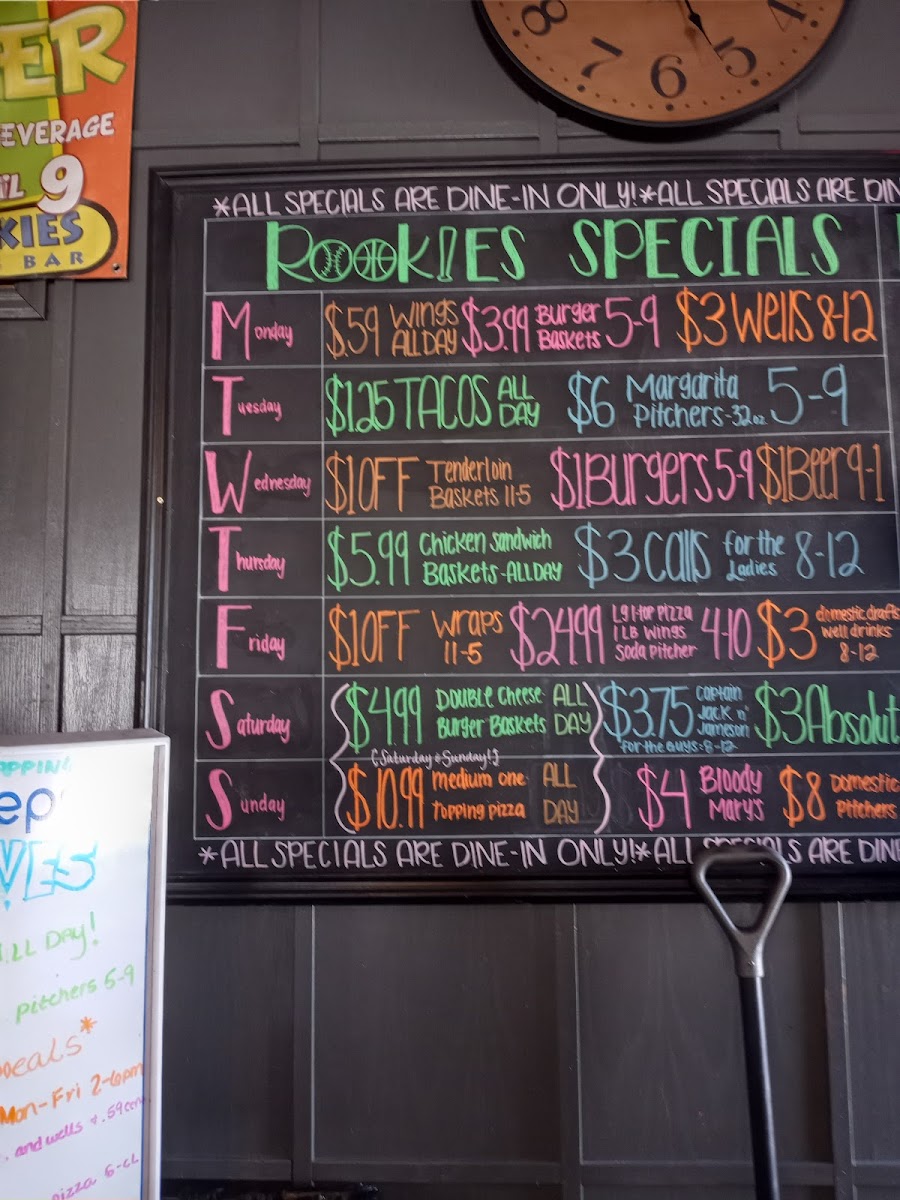 ER
EVERAGE
9
KIES
BAR
8 7 6 5 4
*ALL SPECIALS ARE DINE-IN ONLY!*ALL SPECIALS ARE DIN
ROOKIES SPECIALS
Monday $.59 WINGS ALL DAY $3.99 Burger Baskets 5-9 $3 Wells 8-12
Tuesday $1.25 TACOS ALL DAY $6 Margarita Pitchers-32oz. 5-9
Wednesday $1OFF Tenderloin Baskets 11-5 $1Burgers 5-9 $1Beer 9-1
Thursday $5.99 Chicken Sandwich Baskets-ALLDAY $3 Calls for the Ladies 8-12
Friday $1OFF WRAPS 11-5 $24.99 Lg 1-top Pizza 1 LB Wings Soda Pitcher 4-10 $3 domestic drafts well drinks 8-12
Saturday $4.99 DOUBLE Cheese Burger Baskets ALL DAY $3.75 Captain Jack n' Jameson for the guys-8-12 $3 Absolut
{Saturday & Sunday!}
Sunday $10.99 Medium one Topping pizza ALL DAY $4 Bloody Mary's $8 Domestic Pitchers
*ALL SPECIALS ARE DINE-IN ONLY!*ALL SPECIALS ARE DINE
OPPING
ep
VES
ALL DAY!
Pitchers 5-9
DEALS*
Mon-Fri 2-6pm
, and wells & .59cen
pizza 6-CL